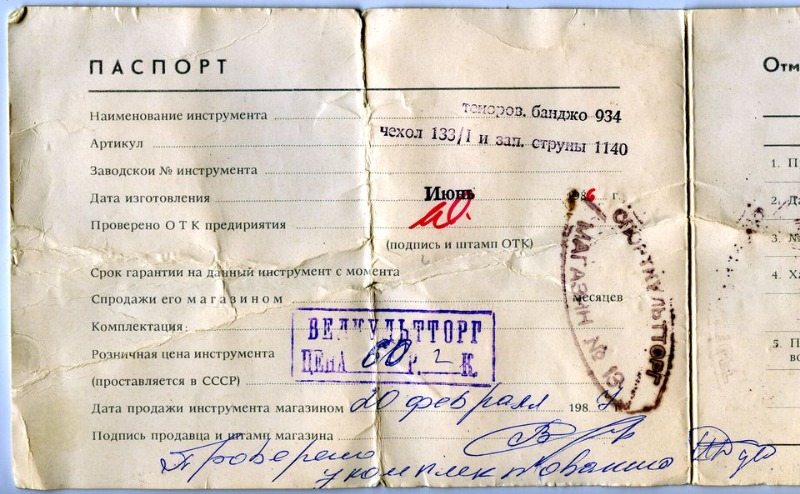 ПАСПОРТ
Отм
Наименование инструмента теноров. банджо 934
Артикул чехол 133/1 и зап. струны 1140
1. П
Заводской № инструмента
Дата изготовления Июнь 1986 г.
2. Да
Проверено ОТК предприятия
(подпись и штамп ОТК)
3. №
Срок гарантии на данный инструмент с момента
4. Ха
Спродажи его магазином месяцев
СПОРТКУЛЬТТОРГ
МАГАЗИН № 19
Комплектация:
ВЕЛКУЛЬТТОРГ
ЦЕНА 60 Р. 2 К.
Розничная цена инструмента
5. П
во
(проставляется в СССР)
Дата продажи инструмента магазином 20 февраля 1987 г.
Подпись продавца и штамп магазина
Проверено
укомплектованно